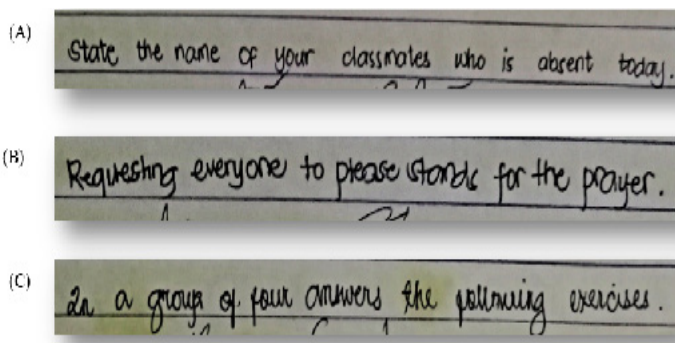 (A) State the name of your classmates who is absent today.
(B) Requesting everyone to please stands for the prayer.
(C) In a group of four answers the following exercises.